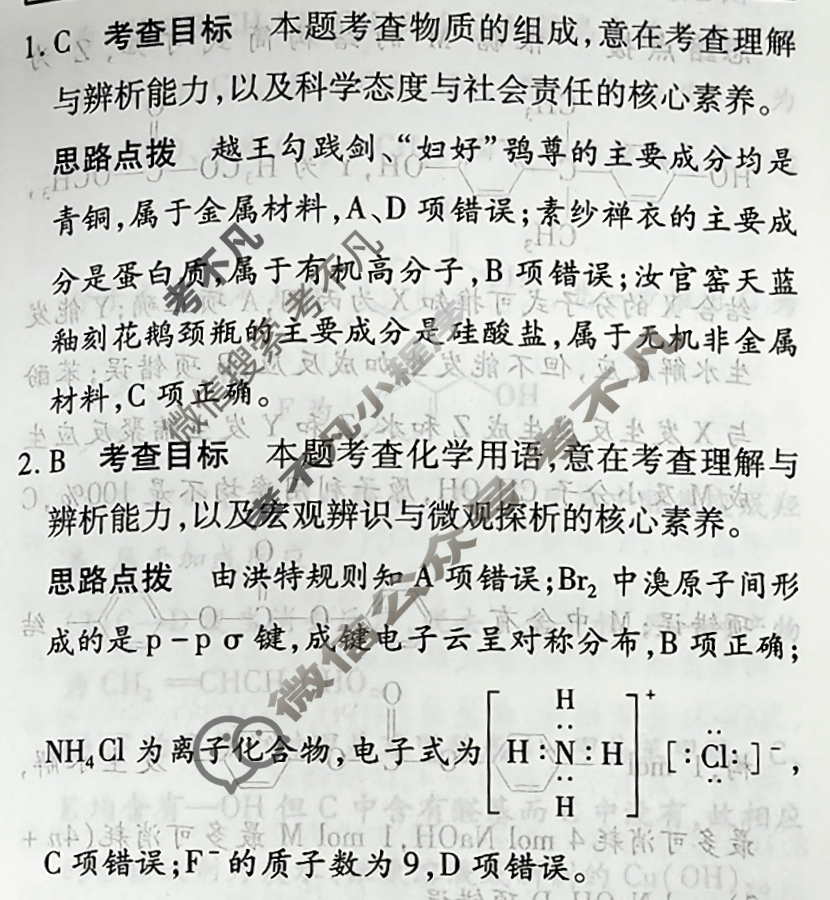 1. C 考查目标 本题考查物质的组成,意在考查理解
与辨析能力,以及科学态度与社会责任的核心素养。
思路点拨 越王勾践剑、“妇好”鸮尊的主要成分均是
青铜,属于金属材料,A、D 项错误;素纱禅衣的主要成
分是蛋白质,属于有机高分子,B 项错误;汝官窑天蓝
釉刻花鹅颈瓶的主要成分是硅酸盐,属于无机非金属
材料,C 项正确。
2. B 考查目标 本题考查化学用语,意在考查理解与
辨析能力,以及宏观辨识与微观探析的核心素养。
思路点拨 由洪特规则知 A 项错误;Br₂ 中溴原子间形
成的是 p-p σ 键,成键电子云呈对称分布,B 项正确;
NH₄Cl 为离子化合物,电子式为 [H:N:H]⁺ [:Cl:]⁻,
H
H
C 项错误;F⁻ 的质子数为 9,D 项错误。
微信搜索 考不凡
考不凡小程序
微信公众号 考不凡